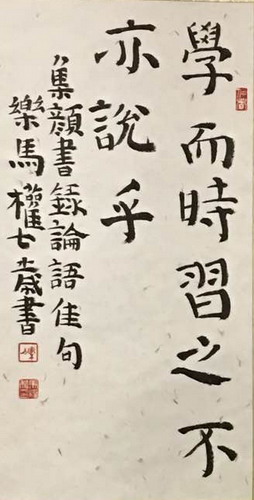 學而時習之不
亦說乎
集顏書錄論語佳句
樂馬權七歲書